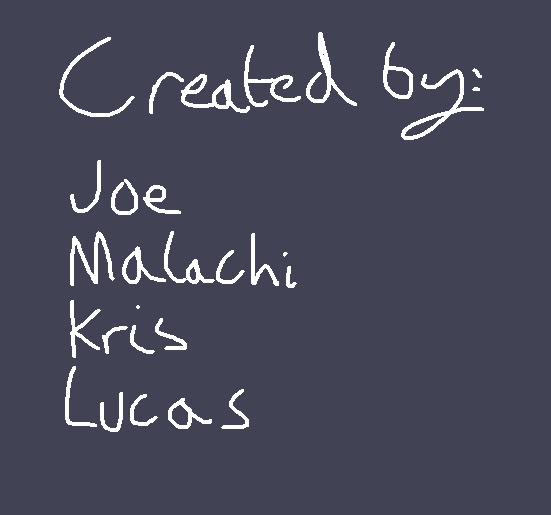 Created by:
Joe
Malachi
Kris
Lucas